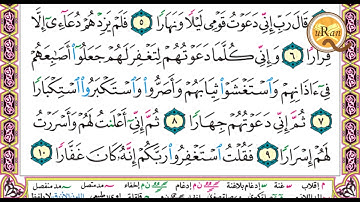 قَالَ رَبِّ إِنِّي دَعَوْتُ قَوْمِي لَيْلًا وَنَهَارًا ٥ فَلَمْ يَزِدْهُمْ دُعَاءِي إِلَّا
فِرَارًا ٦ وَإِنِّي كُلَّمَا دَعَوْتُهُمْ لِتَغْفِرَ لَهُمْ جَعَلُوا أَصَابِعَهُمْ
فِي ءَاذَانِهِمْ وَاسْتَغْشَوْا ثِيَابَهُمْ وَأَصَرُّوا وَاسْتَكْبَرُوا اسْتِكْبَارًا
٧ ثُمَّ إِنِّي دَعَوْتُهُمْ جِهَارًا ٨ ثُمَّ إِنِّي أَعْلَنتُ لَهُمْ وَأَسْرَرْتُ
لَهُمْ إِسْرَارًا ٩ فَقُلْتُ اسْتَغْفِرُوا رَبَّكُمْ إِنَّهُ كَانَ غَفَّارًا ١٠
uRan
م إقلاب غنة إدغام بلاغنة ن م إدغام ن م إخفاء مد متصل مد منفصل